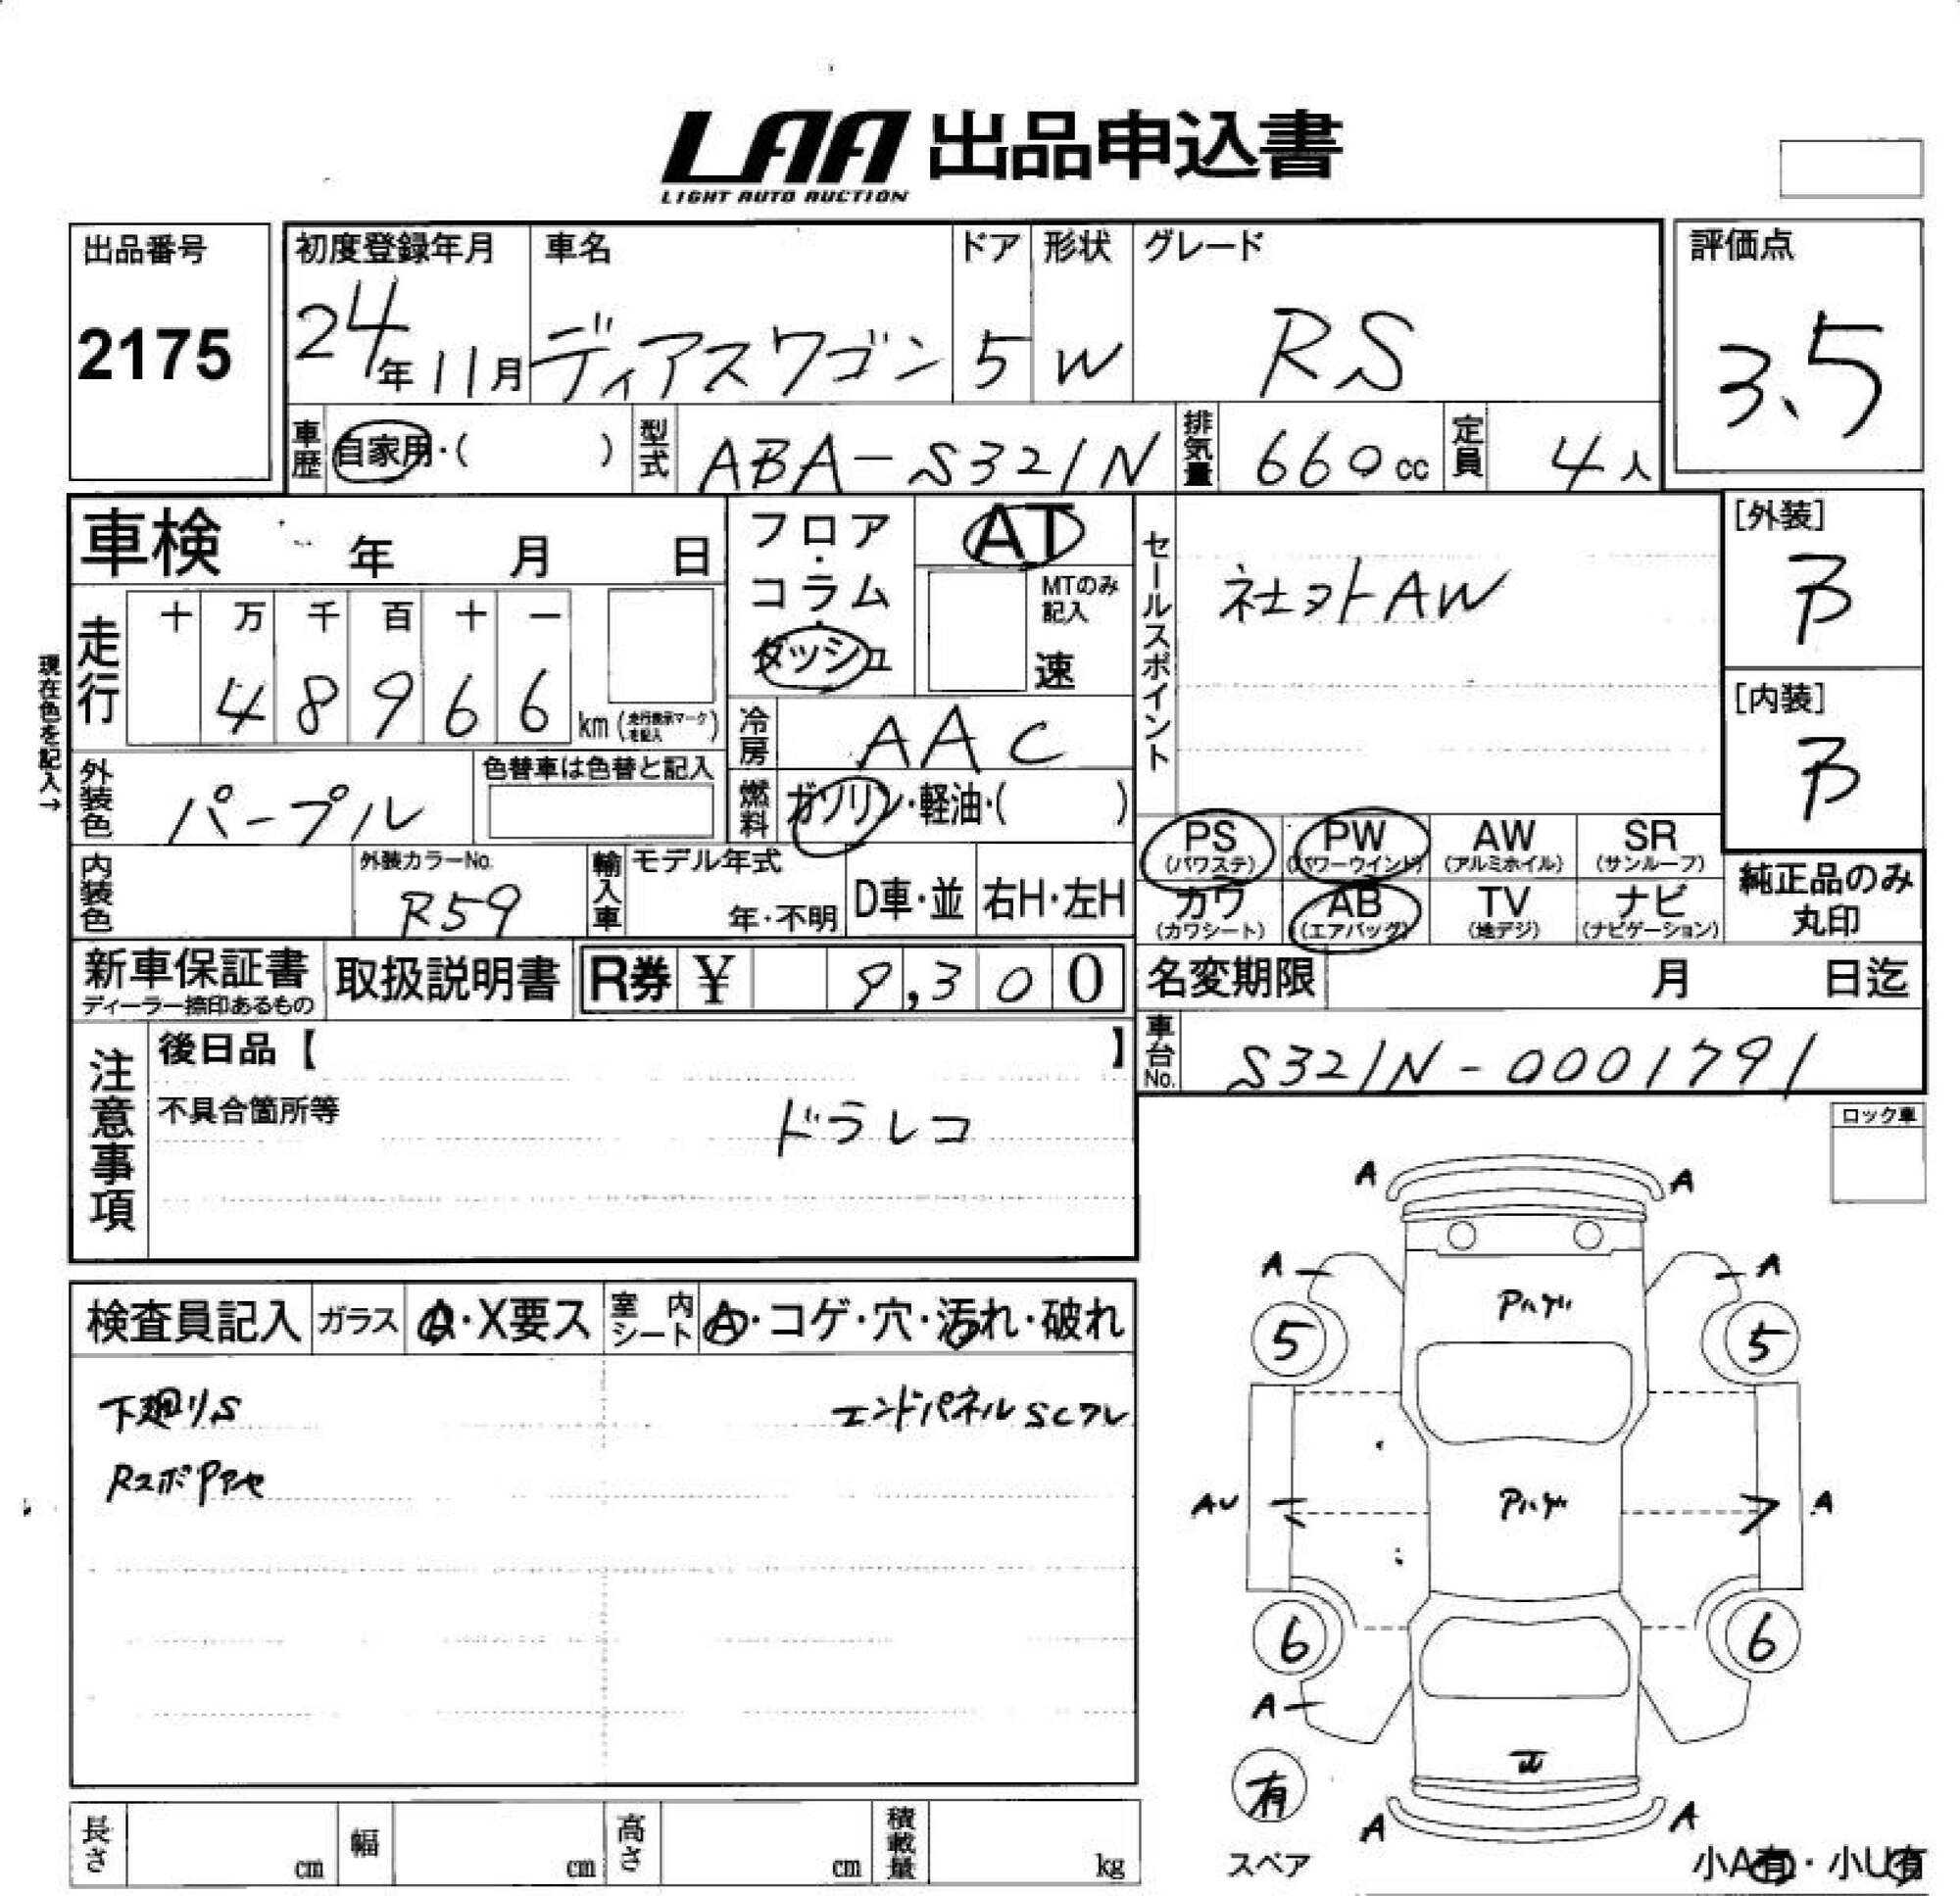 LAA 出品申込書
LIGHT AUTO AUCTION
出品番号
2175
初度登録年月
24年11月
車名
ディアスワゴン
ドア
5
形状
W
グレード
RS
評価点
3.5
車歴
自家用・( )
型式
ABA-S321N
排気量
660cc
定員
4人
車検 年 月 日
フロア・コラム・ダッシュ
AT
MTのみ記入
速
セールスポイント
社外AW
[外装]
B
[内装]
B
現在色を記入→
走行
十 万 千 百 十 一
4 8 9 6 6
km (走行表示マークを記入)
冷房
AAC
外装色
パープル
色替車は色替と記入
燃料
ガソリン・軽油・( )
PS
(パワステ)
PW
(パワーウインド)
AW
(アルミホイル)
SR
(サンルーフ)
内装色
外装カラーNo.
R59
輸入車
モデル年式
年・不明
D車・並
右H・左H
カワ
(カワシート)
AB
(エアバッグ)
TV
(地デジ)
ナビ
(ナビゲーション)
純正品のみ
丸印
新車保証書
ディーラー捺印あるもの
取扱説明書
R券 ¥ 9,300
名変期限 月 日迄
車台No.
S321N-0001791
注意事項
後日品【 】
不具合箇所等
ドラレコ
ロック車
検査員記入
ガラス
A・X要ス
室内シート
A・コゲ・穴・汚れ・破れ
下廻りS
エンドパネルSCズレ
A A
A A
Pハゲ
5 5
AU A
Pハゲ
6 6
A
有
スペア
A A
小A有・小U有
長さ cm
幅 cm
高さ cm
積載量 kg